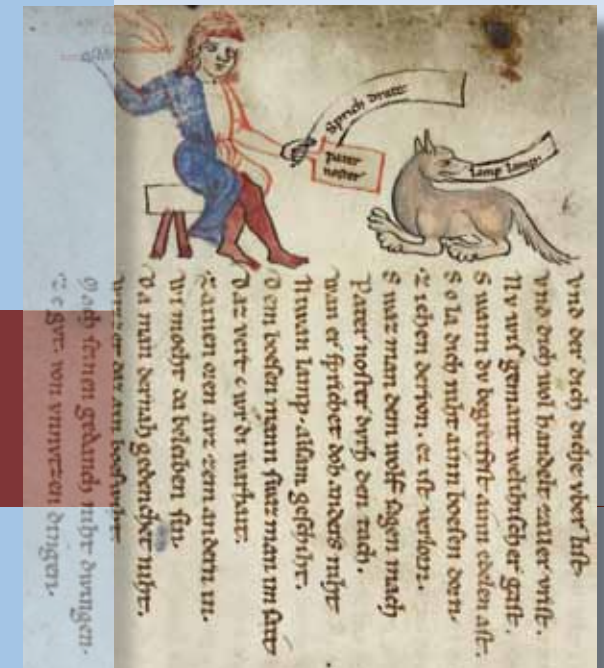 Sprich dratte
pater
noster
lamp lamp.
vnd der dich diche vber list.
vnd dich wol handelt zaller vrist.
Nv wis gemant welhischer gast.
Swann dv begreifest ainn edelen ast.
So la dich niht ainn boesen dorn.
Zichen dervon. ez ist verlorn.
Swaz man dem wolf sagen mach
Pater noster dvrh den tach.
wan er sprichet doh anders niht
Nitwan lamp. alsam geschiht.
Dem boesen mann swaz man im sait
daz vert
zainen oren avz zem andern in.
wi moeht da beleiben sin.
Da man dernah gedenchet niht.
daz ein boeswiht
Doch sinen gedanch niht dwingen.
Ze gvt. von vnnvtzen dingen.